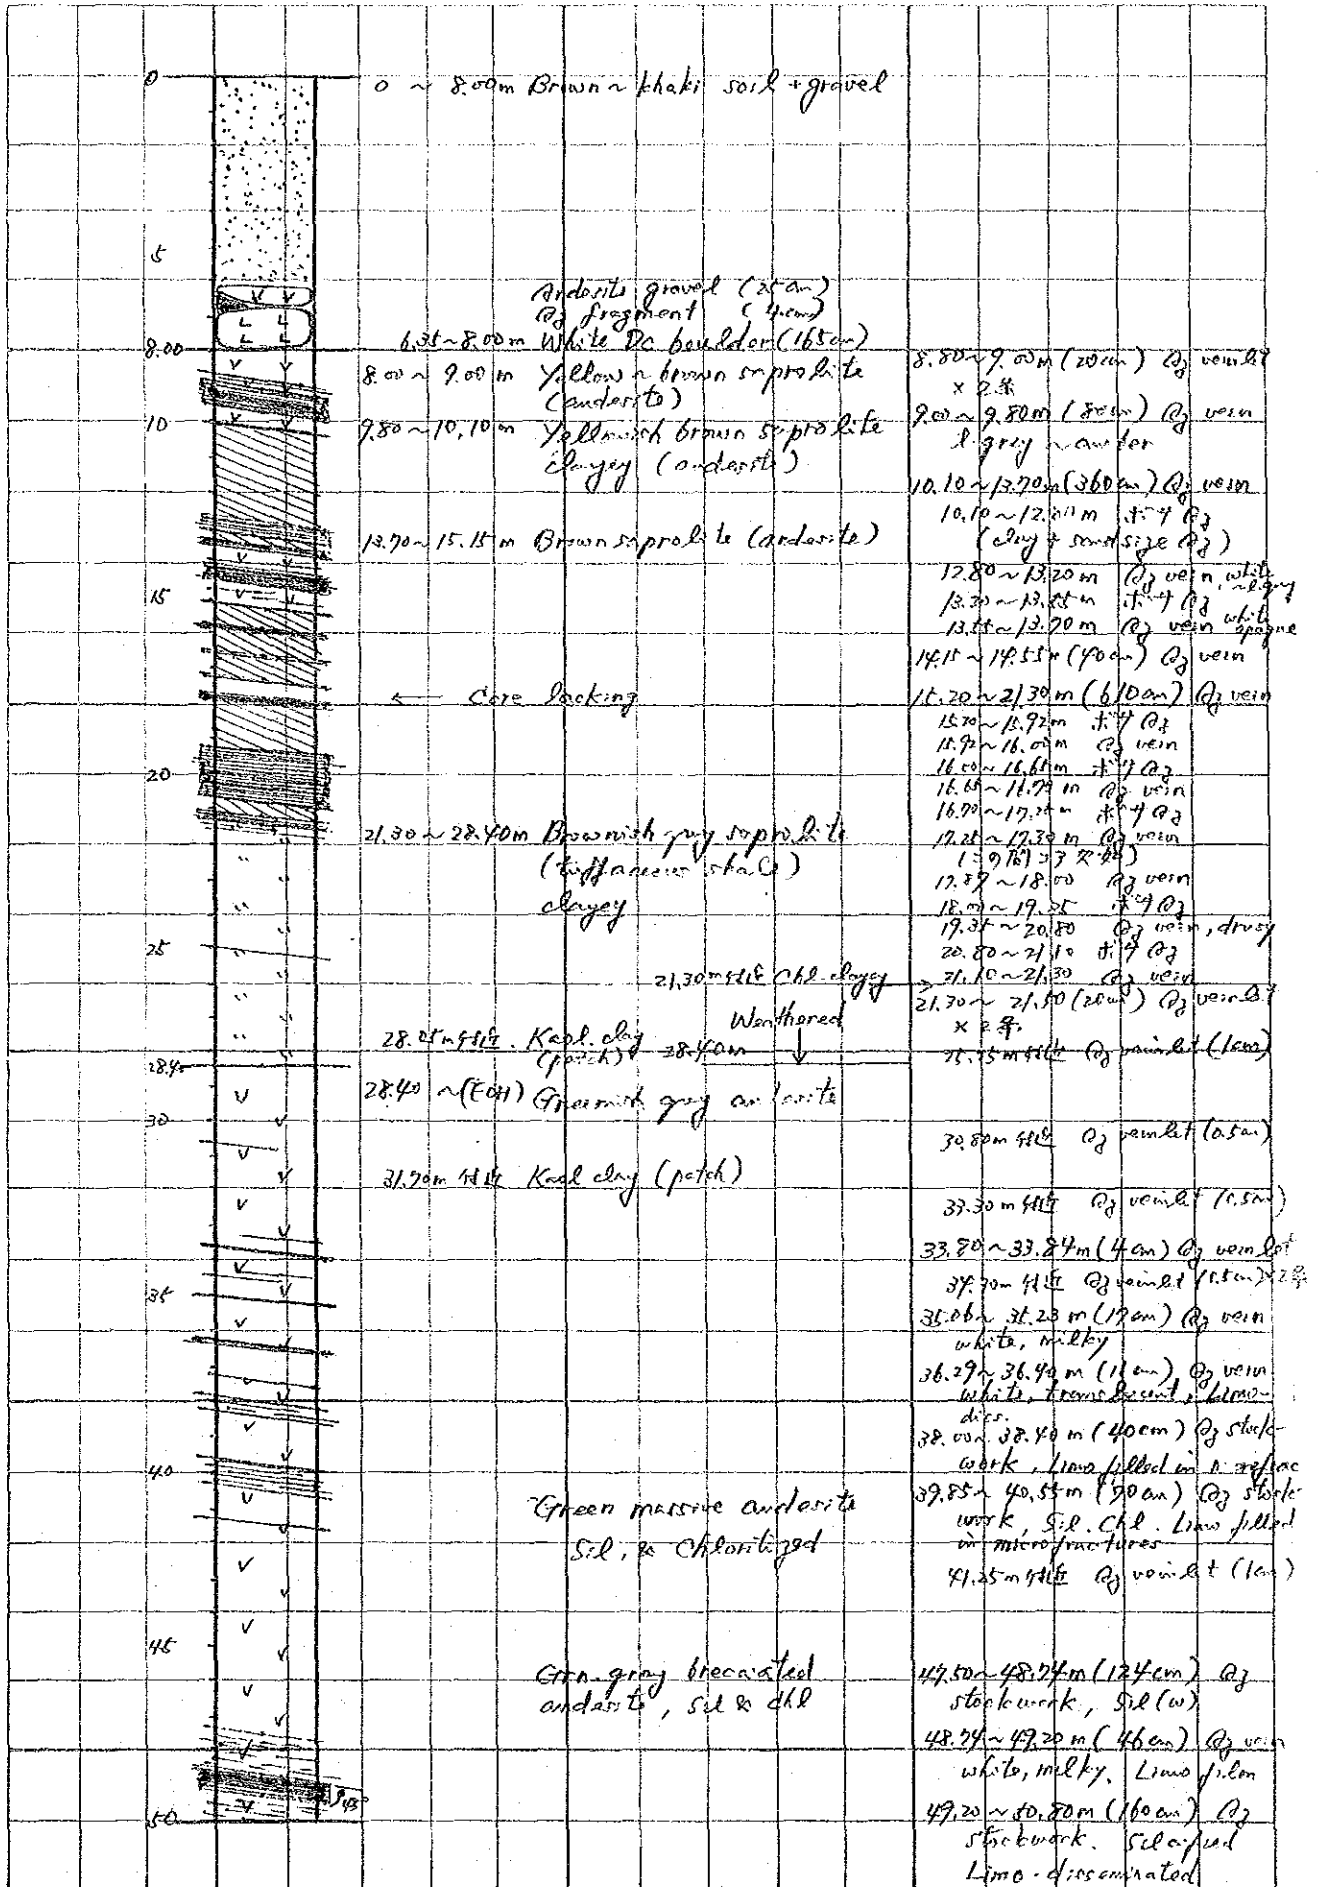 0
0 ~ 8.00m Brown ~ khaki soil + gravel
5
Andesite gravel (25cm)
Qz fragment (4cm)
6.35~8.00m White Dc boulder (165cm)
8.00
8.00 ~ 9.00 m Yellow ~ brown saprolite
(andesite)
10
9.80 ~ 10.10 m Yellowish brown saprolite
clayey (andesite)
13.70 ~ 15.15 m Brown saprolite (andesite)
15
← Core lacking
20
21.30 ~ 28.40m Brownish gray saprolite
(tuffaceous shale)
clayey
25
21.30m付近 Chl. clayey →
Weathered
28.05m付近. Kaol. clay
(patch)
28.40m
28.40
28.40 ~ (EOH) Greenish gray andesite
30
31.70m 付近 Kaol clay (patch)
35
40
Green massive andesite
Sil, & Chloritized
45
Grn. gray brecciated
andesite, sil & chl
45°
50
8.80 ~ 9.00m (20cm) Qz veinlet
× 2条
9.00 ~ 9.80m (80cm) Qz vein
l. gray ~
10.10 ~ 13.70m (360cm) Qz vein
10.10 ~ m ボサ Qz
(clay + sand size Qz)
12.80 ~ 13.20m Qz vein, white
~ l. gray
ボサ Qz
~ 13.70m Qz vein white
opaque
14.15 ~ 14.55m (40cm) Qz vein
15.20 ~ 21.30m (610cm) Qz vein
15.20 ~ 15.92m ボサ Qz
15.92 ~ 16.00m Qz vein
16.00 ~ 16.65m ボサ Qz
Qz vein
ボサ Qz
17.25 ~ 17.30m Qz vein
(この間コア欠如)
~ 18.00 Qz vein
ボサ Qz
~ 20.80 Qz vein, drusy
20.80 ~ 21.10 ボサ Qz
21.10 ~ 21.30 Qz vein
21.30 ~ 21.50 (20cm) Qz veinlet
× 2条
付近 Qz veinlet (1cm)
30.80m 付近 Qz veinlet (0.5cm)
33.30m 付近 Qz veinlet
33.80 ~ 33.84m (4cm) Qz veinlet
付近 Qz veinlet × 2条
35.06 ~ 35.23m (17cm) Qz vein
white, milky
36.29 ~ 36.40m (11cm) Qz vein
white, translucent, Limo-
diss.
38.00 ~ 38.40m (40cm) Qz stock-
work, Limo filled in
39.85 ~ 40.55m (70cm) Qz stock-
work, Sil. Chl. Limo filled
in microfractures
41.25m付近 Qz veinlet (1cm)
47.50 ~ 48.74m (124cm) Qz
stockwork, Sil (w)
48.74 ~ 49.20m (46cm) Qz vein
white, milky. Limo film
49.20 ~ 50.80m (160cm) Qz
stockwork. Silicified
Limo-disseminated